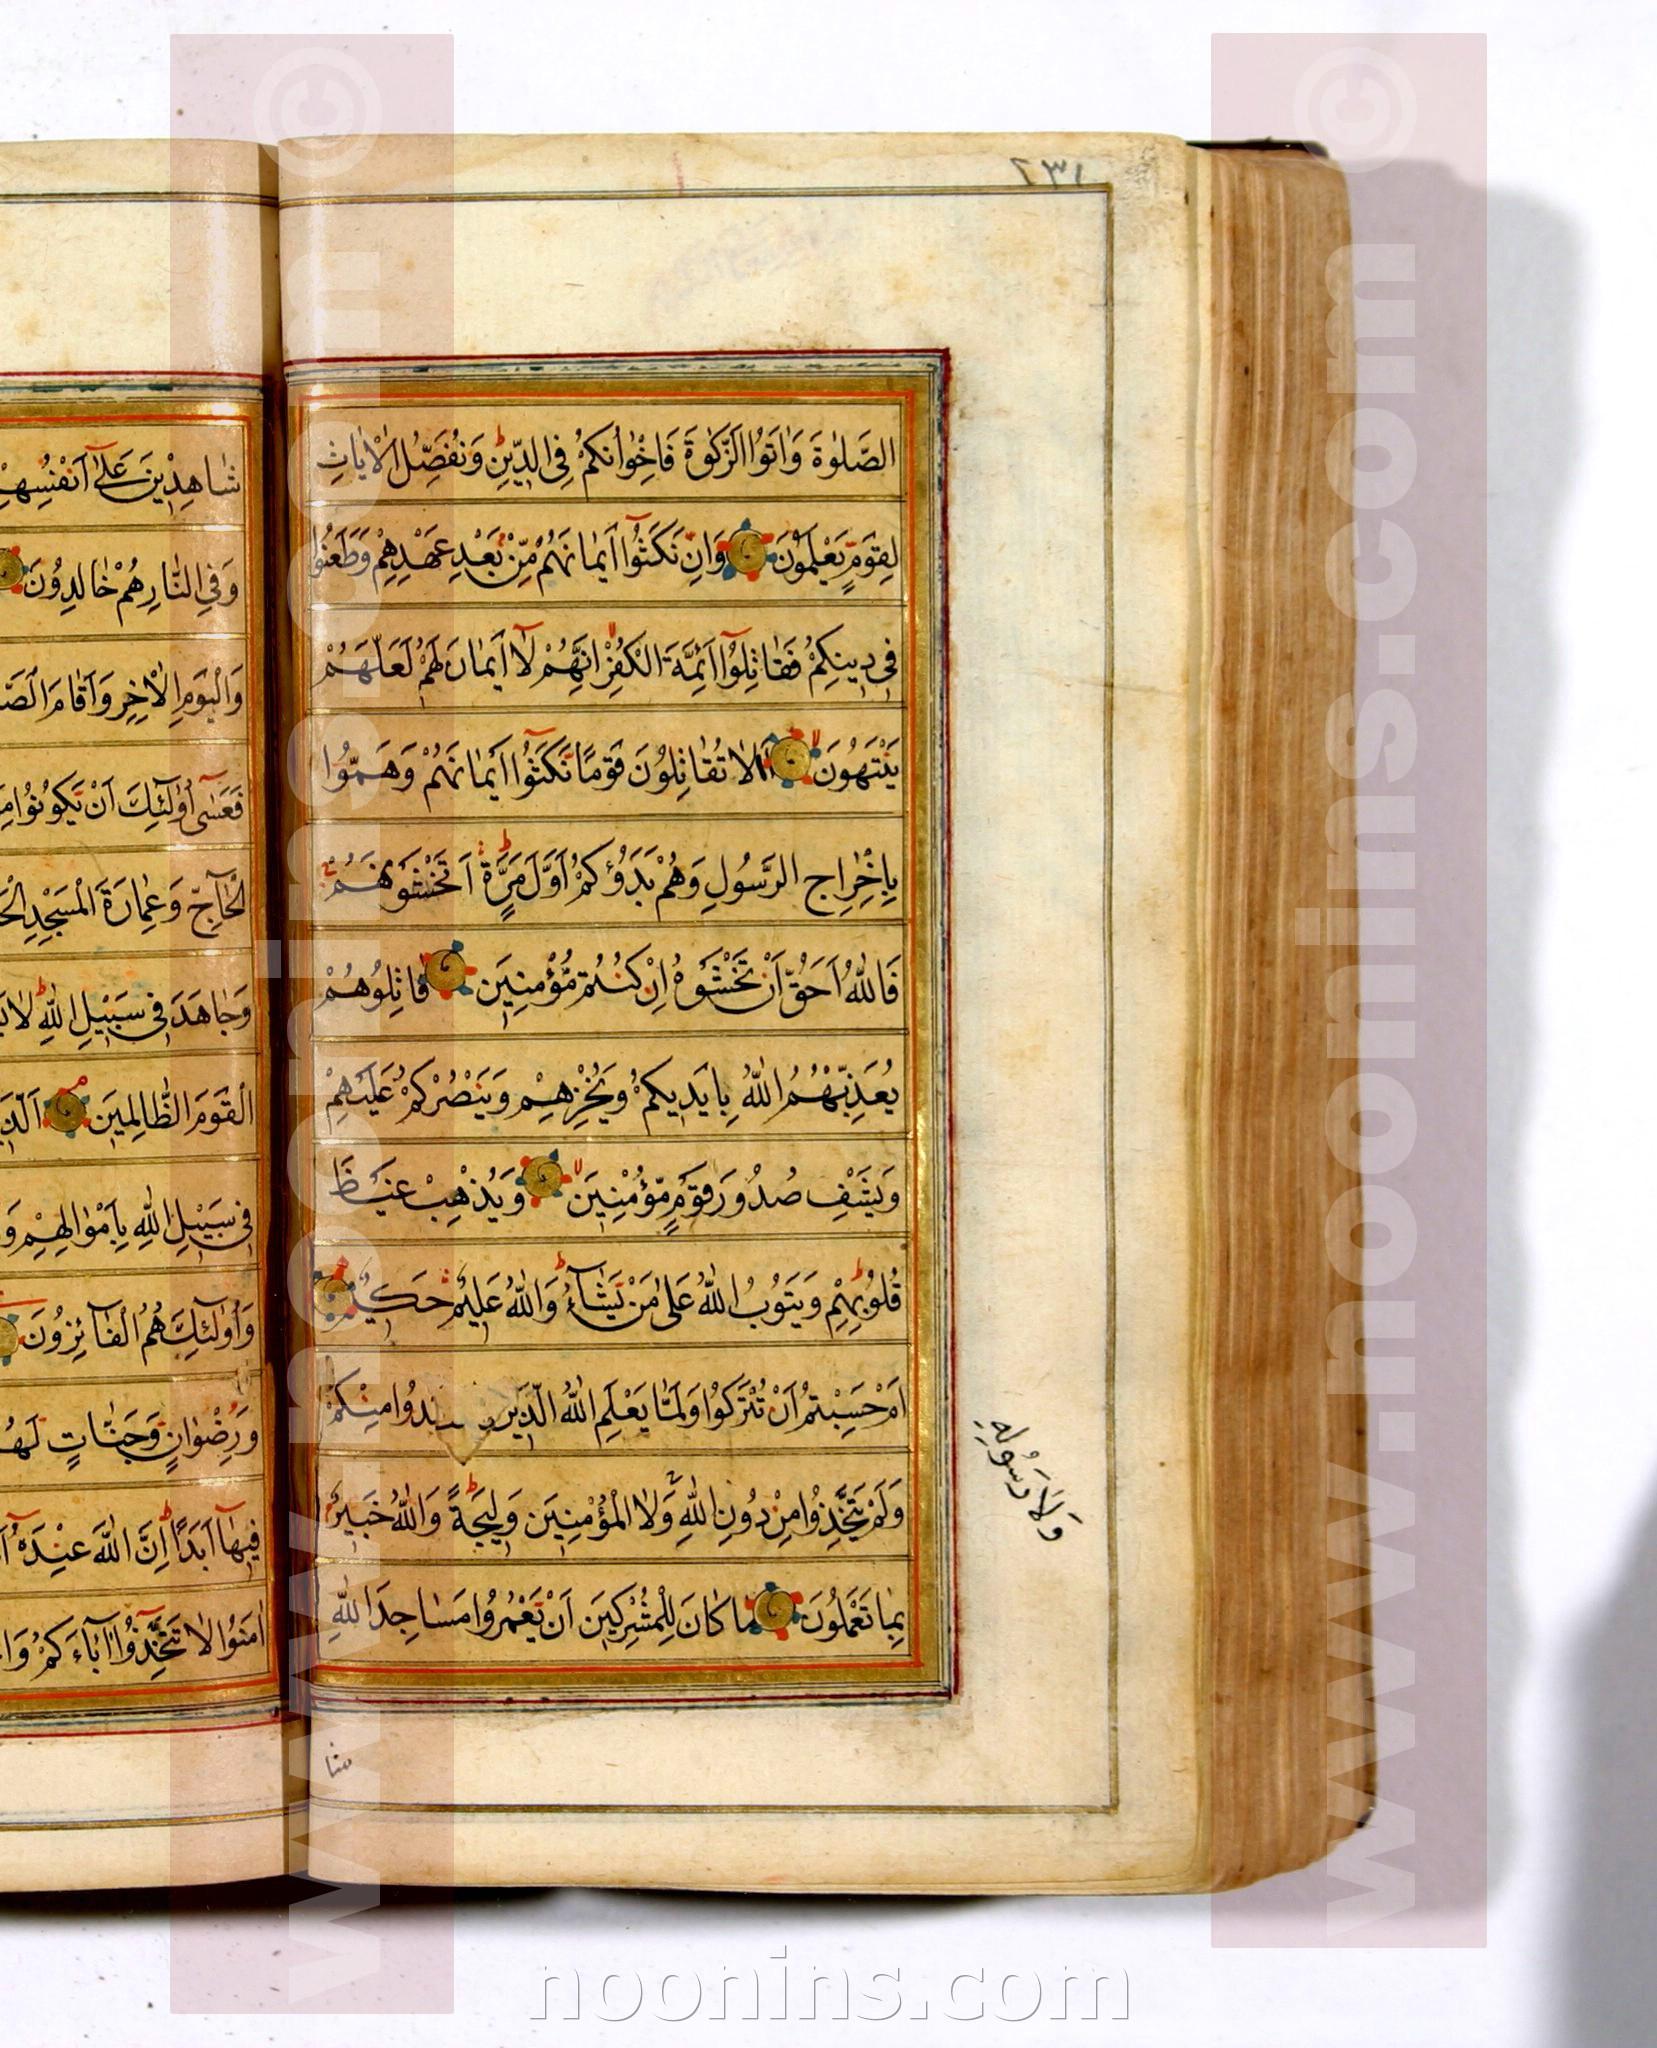 ٢٣١
الصَّلٰوةَ وَاٰتَوُا الزَّكٰوةَ فَاِخْوٰانُكُمْ فِى الدّٖينِ وَنُفَصِّلُ الْاٰيٰاتِ
لِقَوْمٍ يَعْلَمُونَ وَاِنْ نَكَثُوٓا اَيْمٰانَهُمْ مِنْ بَعْدِ عَهْدِهِمْ وَطَعَنُوا
فٖى دٖينِكُمْ فَقٰاتِلُوٓا اَئِمَّةَ الْكُفْرِ اِنَّهُمْ لٰٓا اَيْمٰانَ لَهُمْ لَعَلَّهُمْ
يَنْتَهُونَ اَلٰا تُقٰاتِلُونَ قَوْمًا نَكَثُوٓا اَيْمٰانَهُمْ وَهَمُّوا
بِاِخْرٰاجِ الرَّسُولِ وَهُمْ بَدَؤُكُمْ اَوَّلَ مَرَّةٍ اَتَخْشَوْنَهُمْ
فَاللّٰهُ اَحَقُّ اَنْ تَخْشَوْهُ اِنْ كُنْتُمْ مُؤْمِنٖينَ قٰاتِلُوهُمْ
يُعَذِّبْهُمُ اللّٰهُ بِاَيْدٖيكُمْ وَيُخْزِهِمْ وَيَنْصُرْكُمْ عَلَيْهِمْ
وَيَشْفِ صُدُورَ قَوْمٍ مُؤْمِنٖينَ وَيُذْهِبْ غَيْظَ
قُلُوبِهِمْ وَيَتُوبُ اللّٰهُ عَلٰى مَنْ يَشٰٓاءُ وَاللّٰهُ عَلٖيمٌ حَكٖيمٌ
اَمْ حَسِبْتُمْ اَنْ تُتْرَكُوا وَلَمّٰا يَعْلَمِ اللّٰهُ الَّذٖينَ مِنْكُمْ
وَلَمْ يَتَّخِذُوا مِنْ دُونِ اللّٰهِ وَلَا الْمُؤْمِنٖينَ وَلٖيجَةً وَاللّٰهُ خَبٖيرٌ
بِمٰا تَعْمَلُونَ مٰا كٰانَ لِلْمُشْرِكٖينَ اَنْ يَعْمُرُوا مَسٰاجِدَ اللّٰهِ
وَلَا رَسُولِهِ
شا
شٰاهِدٖينَ عَلٰٓى اَنْفُسِهِمْ
وَفِى النّٰارِ هُمْ خٰالِدُونَ
وَالْيَوْمِ الْاٰخِرِ وَاَقٰامَ الصَّ
فَعَسٰٓى اُولٰٓئِكَ اَنْ يَكُونُوا مِ
الْحٰٓاجِّ وَعِمٰارَةَ الْمَسْجِدِ الْحَ
وَجٰاهَدَ فٖى سَبٖيلِ اللّٰهِ لٰا يَ
الْقَوْمَ الظّٰالِمٖينَ اَلَّذٖ
فٖى سَبٖيلِ اللّٰهِ بِاَمْوٰالِهِمْ وَ
وَاُولٰٓئِكَ هُمُ الْفٰٓائِزُونَ
وَرِضْوٰانٍ وَجَنّٰاتٍ لَهُ
فٖيهٰٓا اَبَدًا اِنَّ اللّٰهَ عِنْدَهُٓ اَ
اٰمَنُوا لٰا تَتَّخِذُوٓا اٰبٰٓاءَكُمْ وَا
www.noonins.com ©
www.noonins.com ©
noonins.com